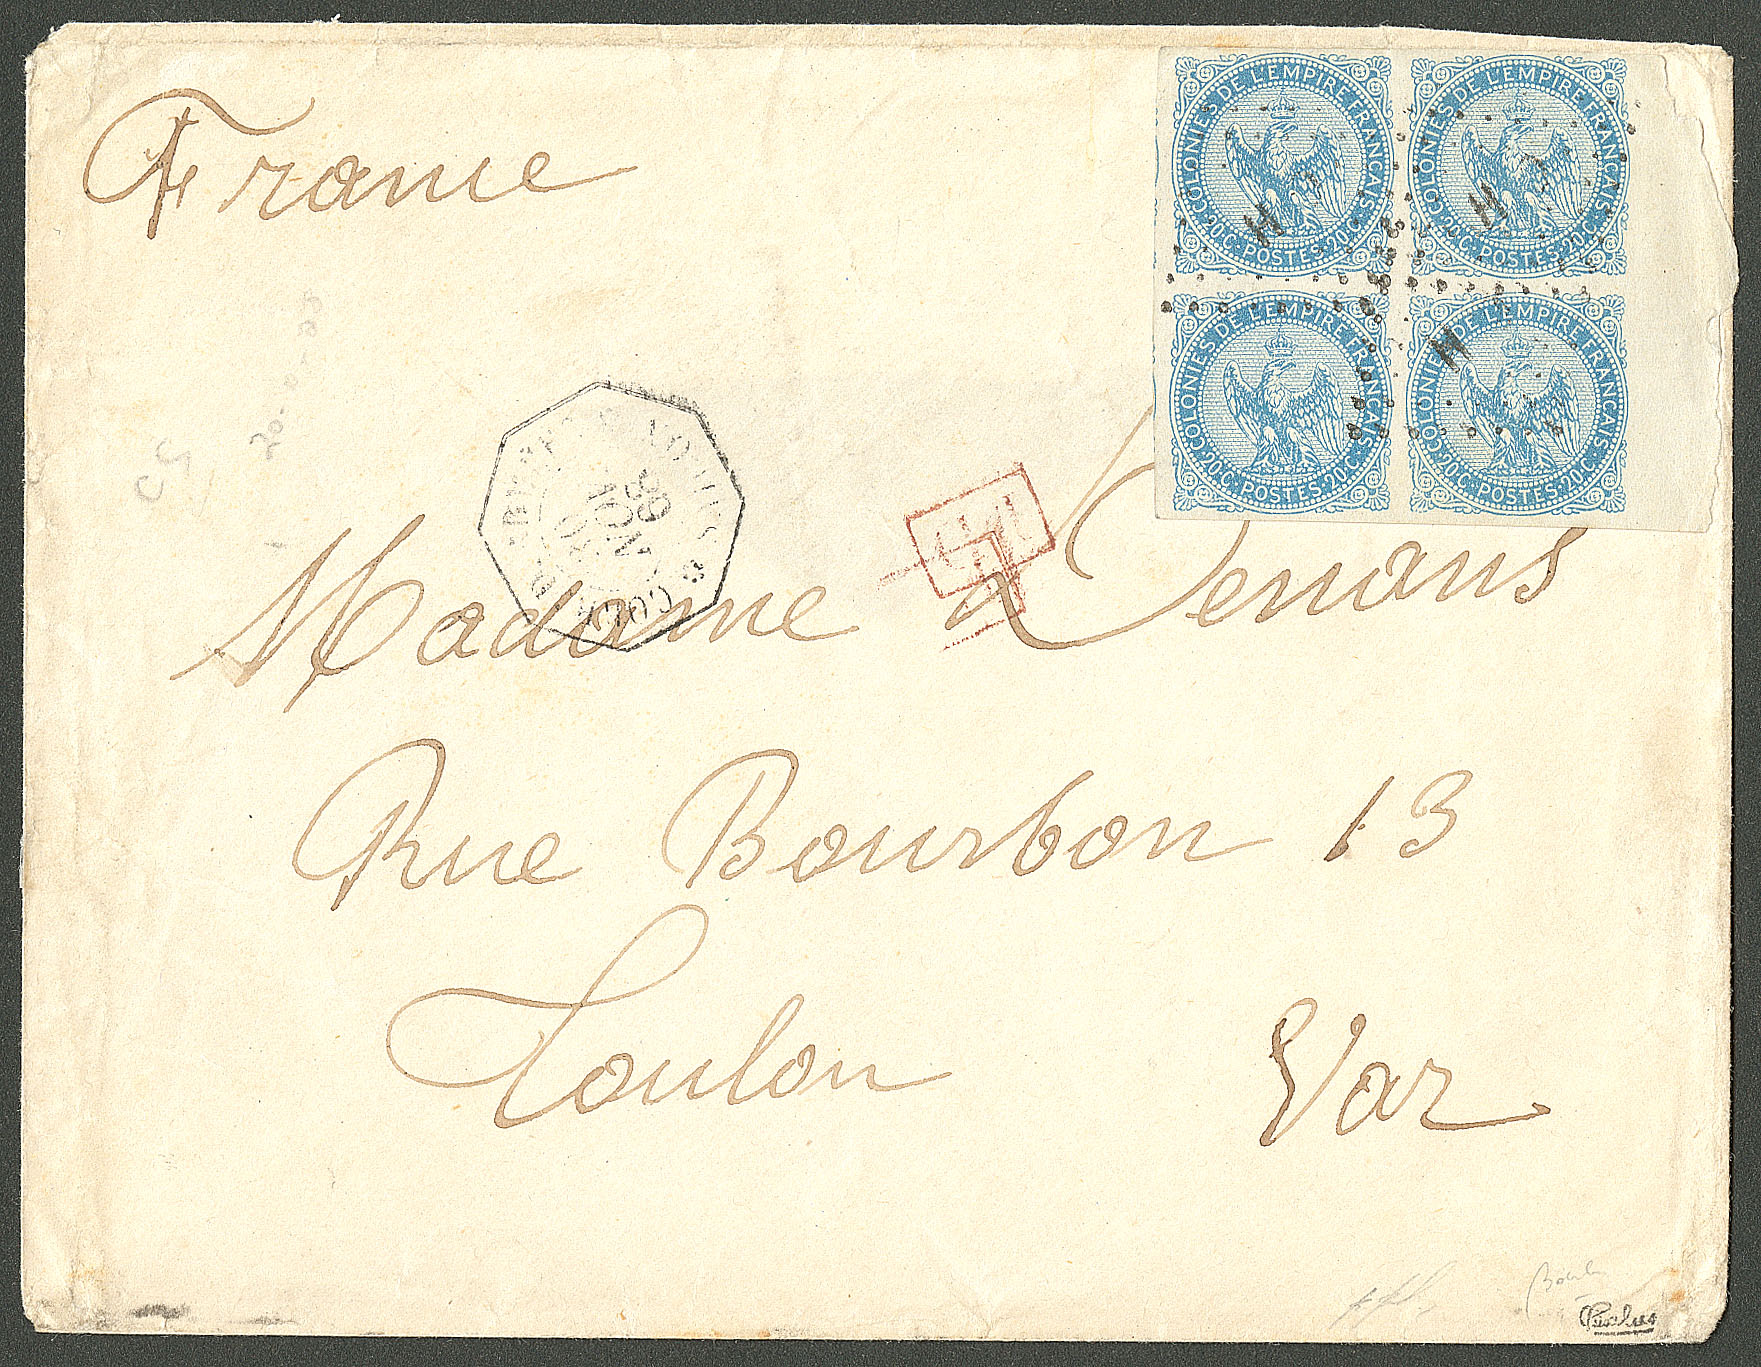 France
COLONIES DE L'EMPIRE FRANÇAIS
20.C. POSTES 20.C.
COLONIES DE L'EMPIRE FRANÇAIS
20.C. POSTES 20.C.
COLONIES DE L'EMPIRE FRANÇAIS
20.C. POSTES 20.C.
COLONIES DE L'EMPIRE FRANÇAIS
20.C. POSTES 20.C.
NOV
68
Madame
Rue Bourbon 13
Toulon Var